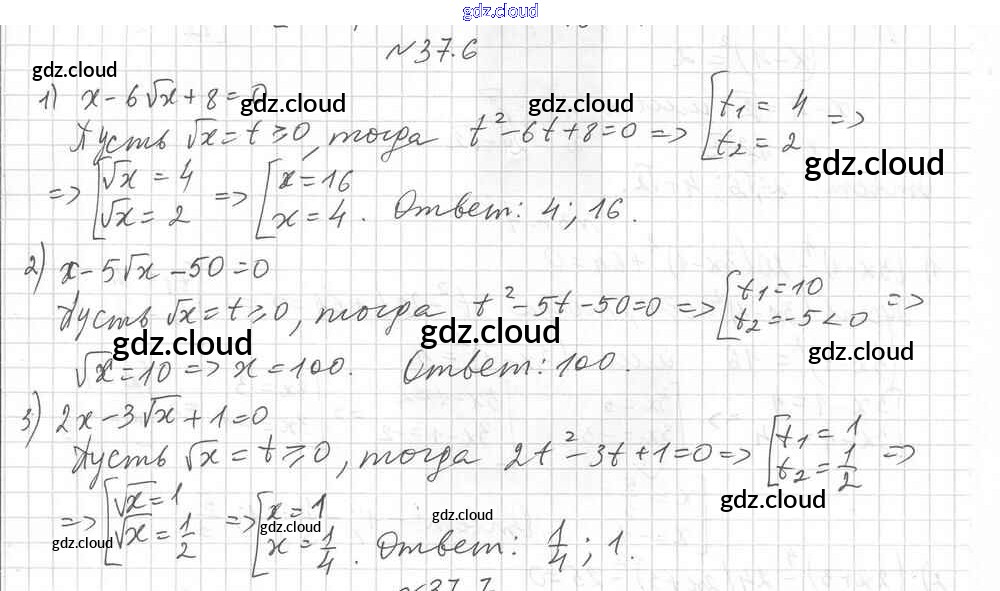 gdz.cloud
№37.6
gdz.cloud
1) x - 6√x + 8 = 0
gdz.cloud
gdz.cloud
Пусть √x = t ≥ 0, тогда t² - 6t + 8 = 0 => [ t₁ = 4 t₂ = 2 =>
gdz.cloud
=> [ √x = 4 √x = 2 => [ x = 16 x = 4. Ответ: 4; 16.
2) x - 5√x - 50 = 0
Пусть √x = t ≥ 0, тогда t² - 5t - 50 = 0 => [ t₁ = 10 t₂ = -5 < 0 =>
gdz.cloud
gdz.cloud
gdz.cloud
√x = 10 => x = 100. Ответ: 100.
3) 2x - 3√x + 1 = 0
Пусть √x = t ≥ 0, тогда 2t² - 3t + 1 = 0 => [ t₁ = 1 t₂ = 1/2 =>
gdz.cloud
=> [ √x = 1 √x = 1/2 => [ x = 1 x = 1/4. Ответ: 1/4; 1.
gdz.cloud
gdz.cloud
gdz.cloud
№37.7